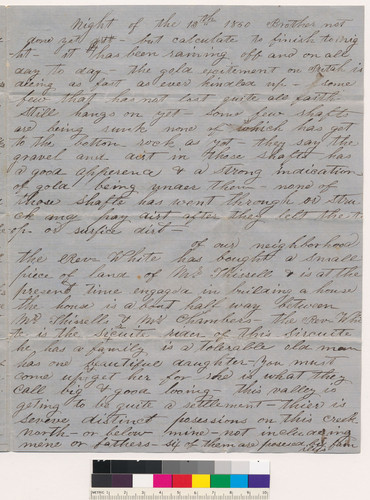 Night of the 18th 1860 Brother not
gone yet yet - but calculate to finish to nig
ht - it has been raining off and on all
day to day - the gold excitement on is
dieing as fast as ever kindled up - some
few that has not lost quite all faith
still hangs on yet - some few shafts
are being sunk none of which has got
to the bottom rock as yet - they say the
gravel and dirt in those shafts has
a good apperence & a strong indication
of gold being under them - none of
those shafts has went through or stru
ck any pay dirt after they left the t
op - or surfice dirt -
of our neighborhood
the Revr White has bought a small
piece of land of Mr Thissells & is at the
present time engagda in building a house
the house is a bout half way between
Mr Thissells & Mr Chambers - the Rev Whi
te is the rider of this circuite
he has a family is a tolerable old man
has one beautiful daughter - you must
come up get her for she is what they
call big & good looing - this valley is
geting to be quite a settlement - thier is
sevone distinct posessions on this Creek
north - or below mine - not including
mine or fathers - six of them are